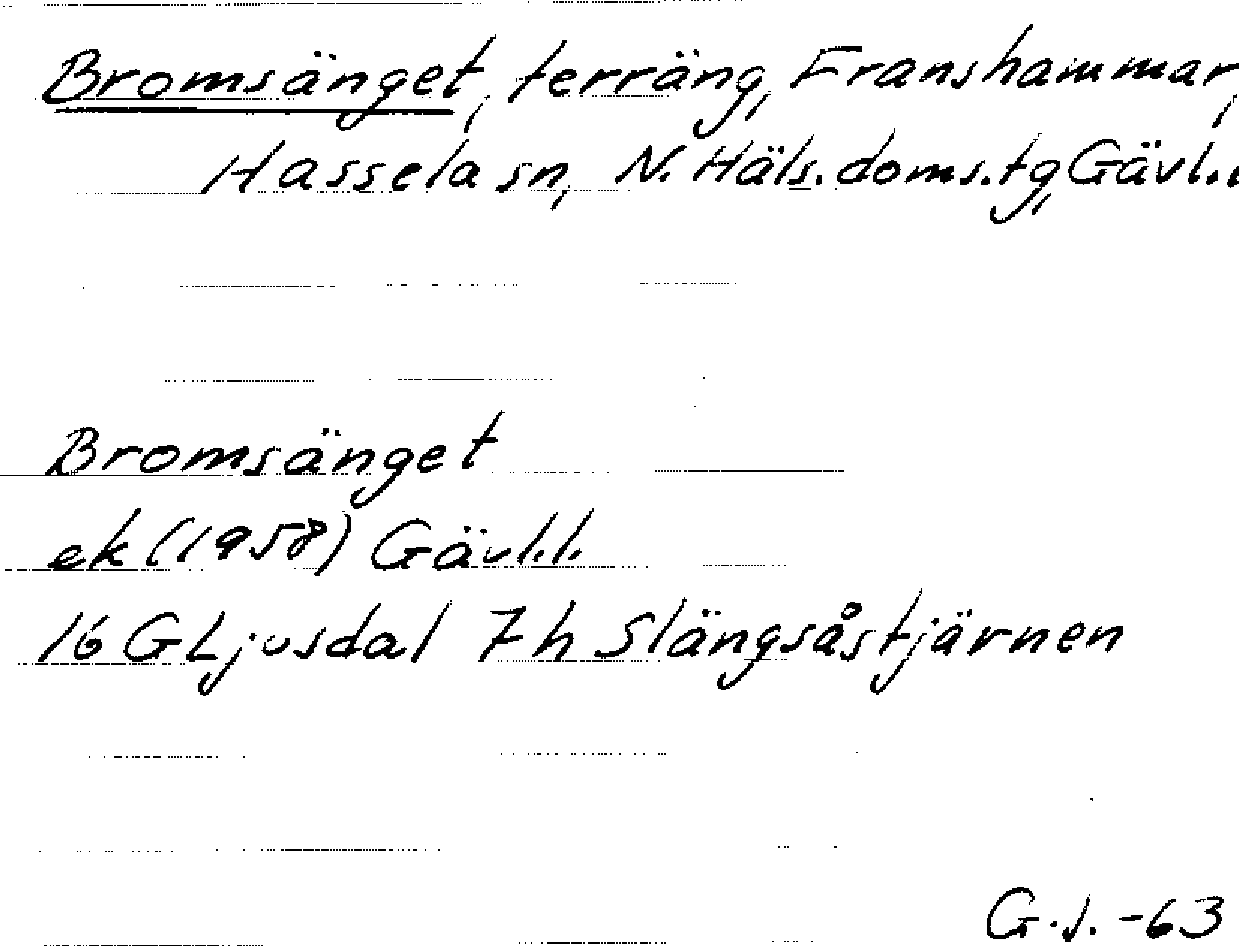 Bromsänget, terräng, Franshammar,
Hassela sn, N. Häls. doms. tg, Gävl. l
Bromsänget
ek (1958) Gävl. l.
16 G Ljusdal 7 h Slängsåstjärnen
G. J. -63